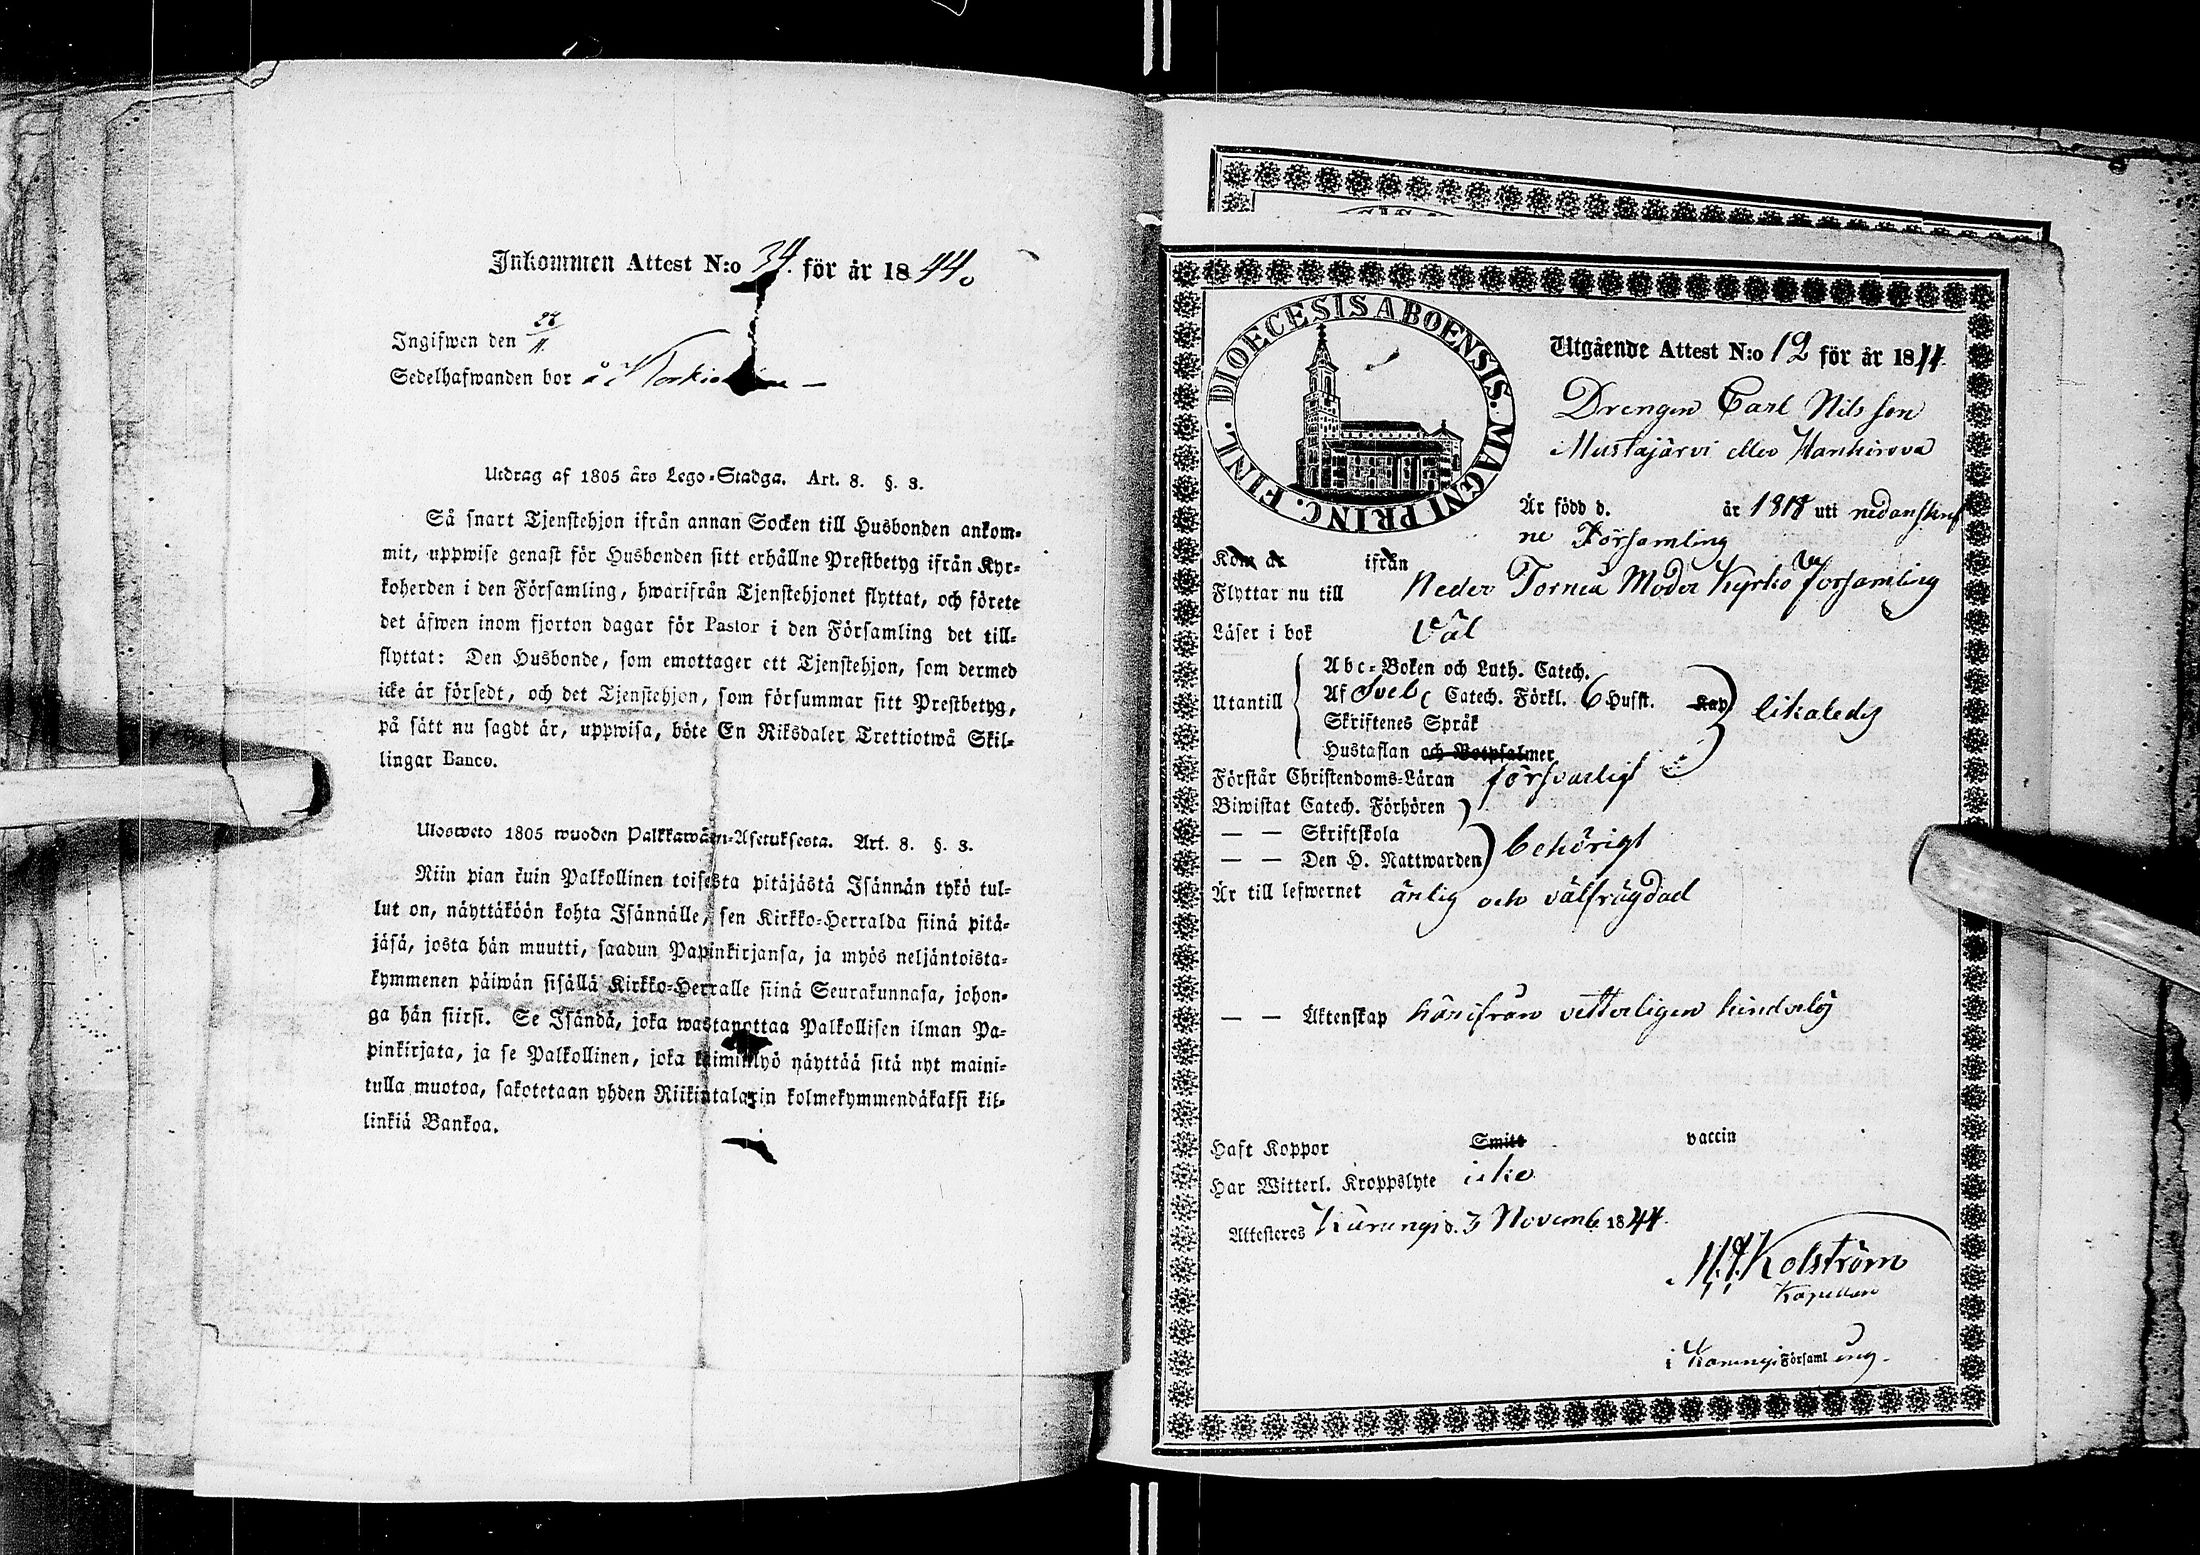 Inkommen Attest N:o 34. för år 1844.
Ingifwen den 28/11.
Sedelhafwanden bor å
Utdrag af 1805 års Lego-Stadga. Art. 8. §. 3.
Så snart Tjenstehjon ifrån annan Socken till Husbonden ankom-
mit, uppwise genast för Husbonden sitt erhållne Prestbetyg ifrån Kyr-
koherden i den Församling, hwarifrån Tjenstehjonet flyttat, och förete
det äfwen inom fjorton dagar för Pastor i den Församling det till-
flyttat: Den Husbonde, som emottager ett Tjenstehjon, som dermed
icke är försedt, och det Tjenstehjon, som försummar sitt Prestbetyg,
på sätt nu sagdt är, uppwisa, böte En Riksdaler Trettiotwå Skil-
lingar Banco.
Ulosweto 1805 wuoden Palkkawäen-Asetuksesta. Art. 8. §. 3.
Niin pian kuin Palkollinen toisesta pitäjästä Isännän tykö tul-
lut on, näyttäköön kohta Isännälle, sen Kirkko-Herralda siinä pitä-
jäsä, josta hän muutti, saadun Papinkirjansa, ja myös neljäntoista-
kymmenen päiwän sisällä Kirkko-Herralle siinä Seurakunnasa, johon-
ga hän siirsi. Se Isändä, joka wastanottaa Palkollisen ilman Pa-
pinkirjata, ja se Palkollinen, joka laiminlyö näyttää sitä nyt maini-
tulla muotoa, sakotetaan yhden Riikintalarin kolmekymmendäkaksi kil-
linkiä Bankoa.
DIOECESIS ABOENSIS. MAGNI PRINC. FINL.
Utgående Attest N:o 12 för år 1844.
Drengen Carl Nilsson
Mustajärvi eller Hankirova
Är född d. år 1818 uti nedanskref
ne Församling
Kom år ifrån
Flyttar nu till Neder Torneå Moder Kyrko församling
Läser i bok Väl
Abc-Boken och Luth. Catech.
Utantill Af Sveb Catech. Förkl. 6 Hufst. Kap likaledes
Skriftenes Språk
Hustaflan och Botpsalmer
Förstår Christendoms-Läran försvarligt
Biwistat Catech. Förhören
— — Skriftskola behörigt
— — Den H. Nattwarden
Är till lefwernet ärlig och välfrägdad
— — Äktenskap härifrån vetterligen hinderlös
Haft Koppor Smitt vaccin
Har Witterl. Kroppslyte icke
Attesteres Karungi d. 3 Novemb. 1844.
M. J. Kolström
Kapellan
i Karungi Församl ing.